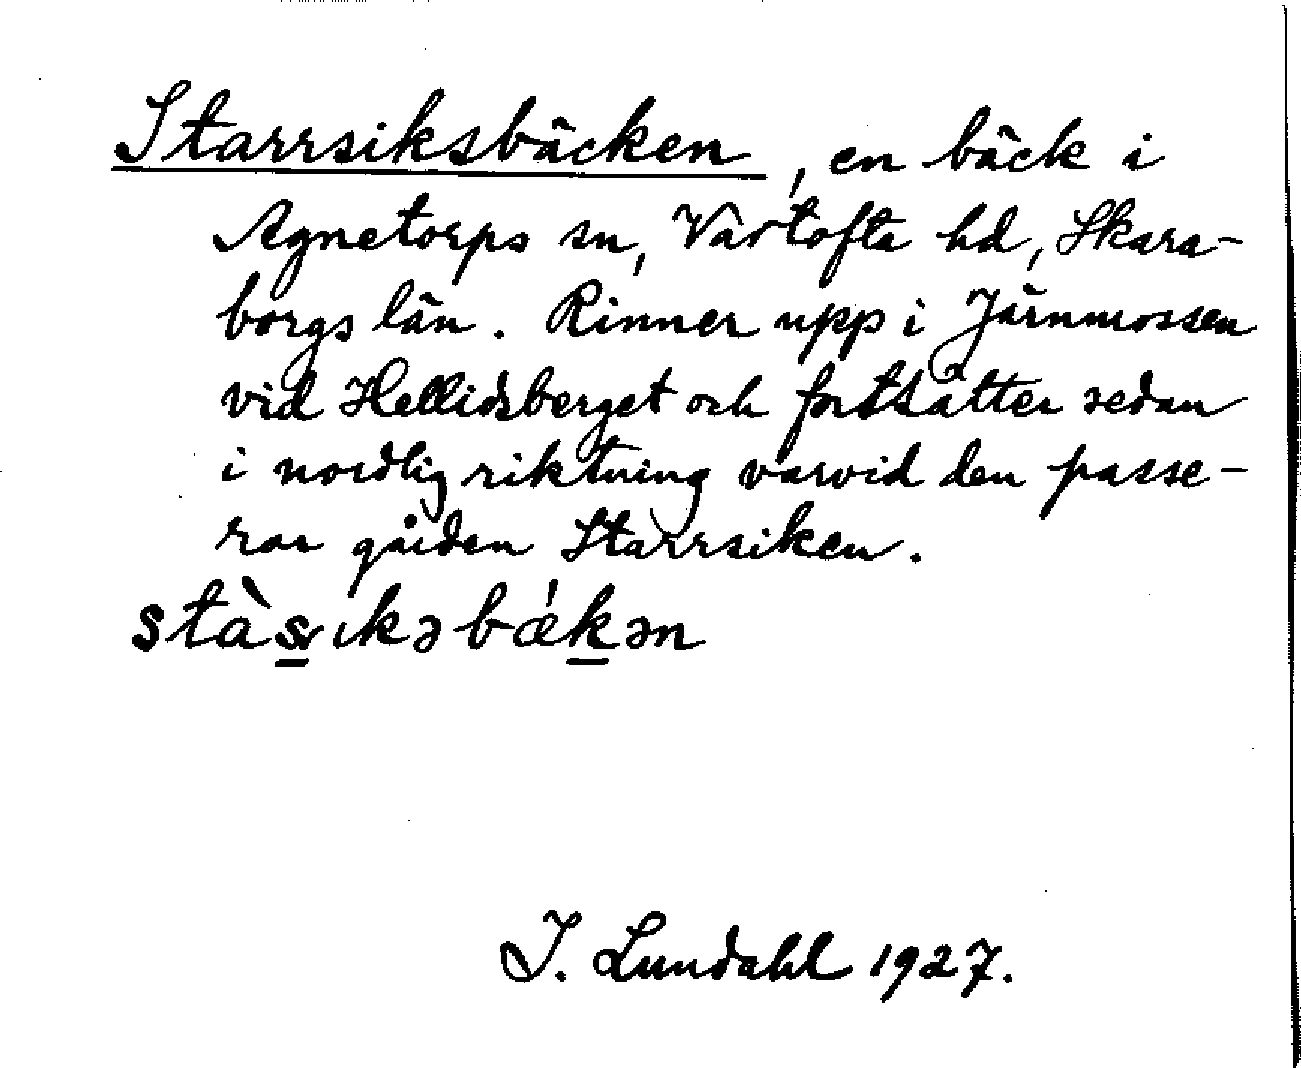 Starrsiksbäcken, en bäck i
Agnetorps sn, Vartofta hd, Skara-
borgs län. Rinner upp i Järnmossen
vid Hellidsberget och fortsätter sedan
i nordlig riktning varvid den passe-
rar gården Starrsiken.
stàs̠ıkəbǽk̠ən
I. Lundahl 1927.